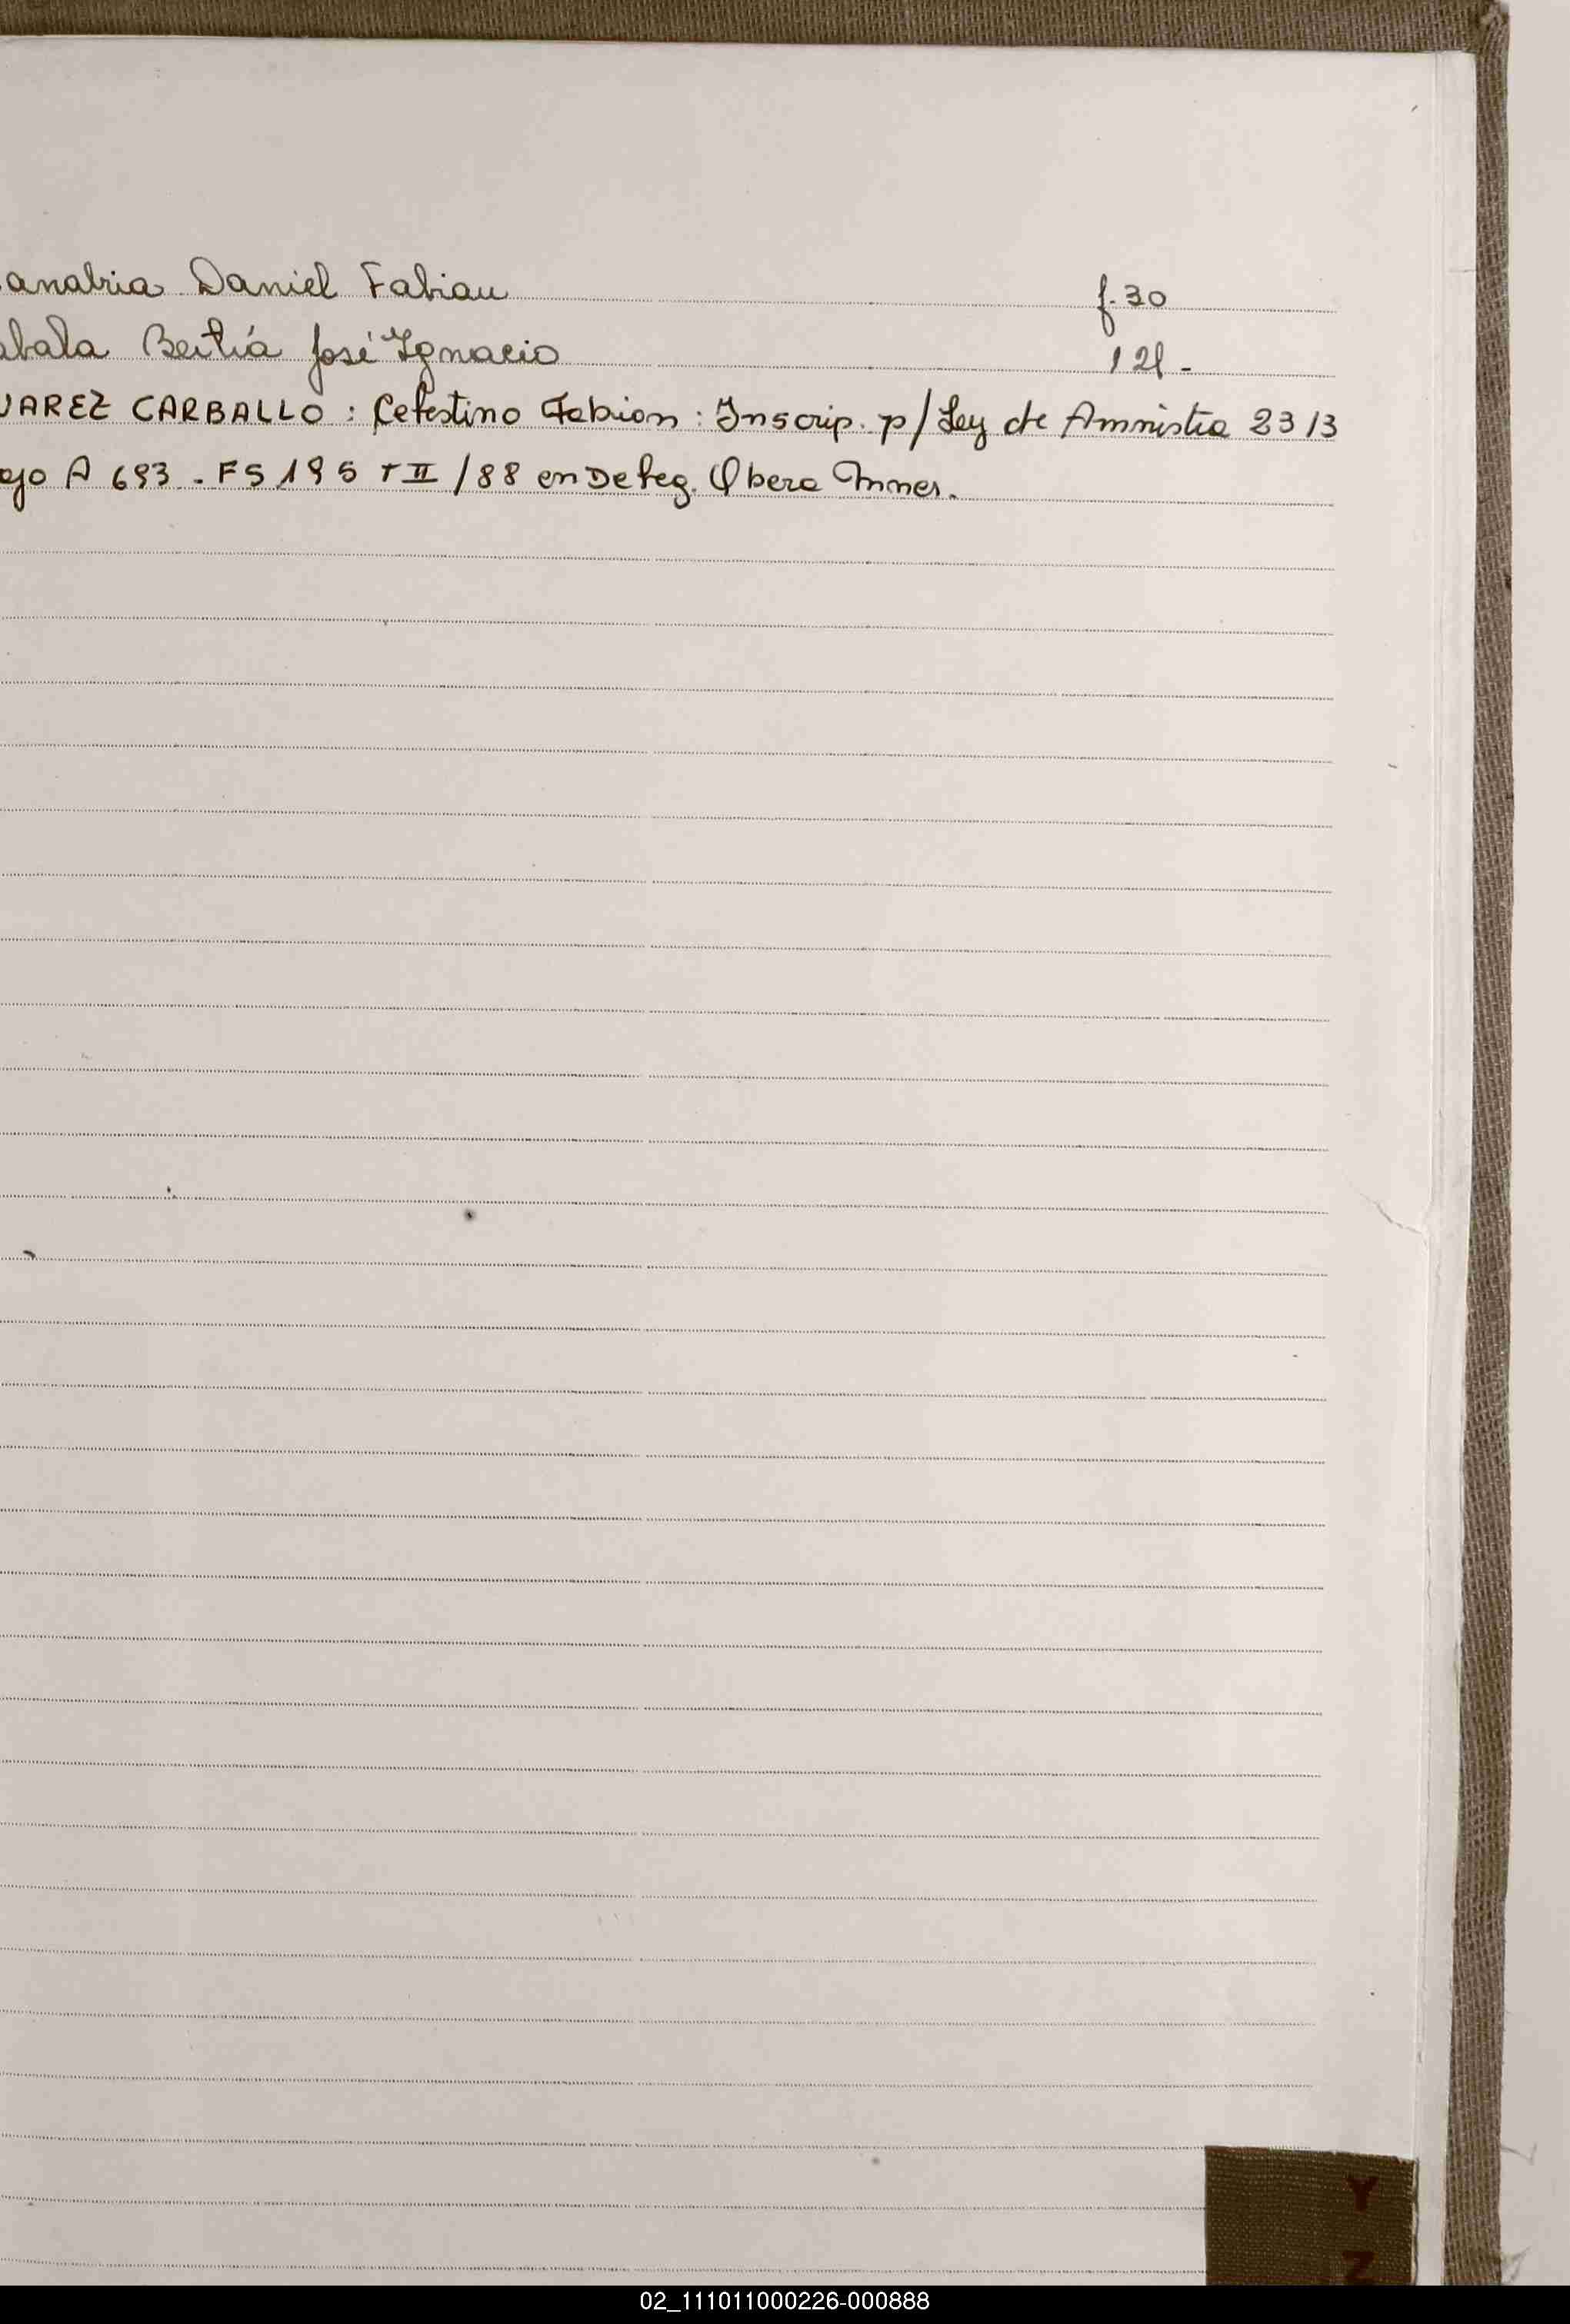 anabria Daniel Fabian f. 30
abala Beitía José Ignacio 121 -
UAREZ CARBALLO : Celestino Fabion : Inscrip. p/ Ley de Amnistia 23/3
ajo A 693 . FS 195 T II /88 en Deleg. Obera Mnes.
Y
Z
02_111011000226-000888